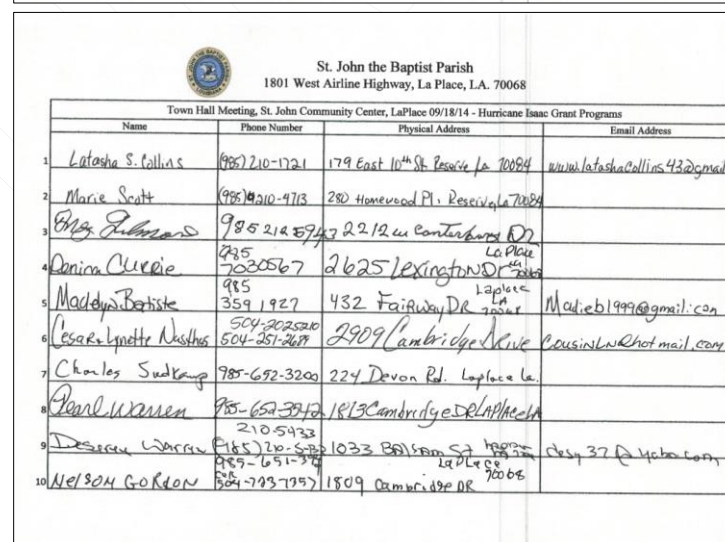 St. John the Baptist Parish
1801 West Airline Highway, La Place, LA. 70068
Town Hall Meeting, St. John Community Center, LaPlace 09/18/14 - Hurricane Isaac Grant Programs
Name Phone Number Physical Address Email Address
1 Latasha S. Collins (985) 210-1721 179 East 10th St. Reserve La 70084 www.latashacollins43@gmail
2 Marie Scott (985) 210-4713 280 Homewood Pl. Reserve, La 70084
3 985 212 5943 2212 W Canterbury Dr
4 Currie 985 7030567 2625 Lexington Dr LaPlace
5 Madelyn Batiste 985 359 1927 432 Fairway DR Laplace LA 70068 Madieb1999@gmail.com
6 Cesar & Lynette 504-2025210 504-251- 2909 Cambridge Drive CousinLN@hotmail.com
7 Charles Sudkamp 985-652-3200 224 Devon Rd. Laplace La.
8 Pearl Warren 985-652-3542 1813 Cambridge DR LAPlace LA
9 Warren 210-5433 (985) 1033 BAlsam St desy37@yahoo.com
10 NelSON GORDON 985-651- 1809 Cambridge DR LaPlace 70068